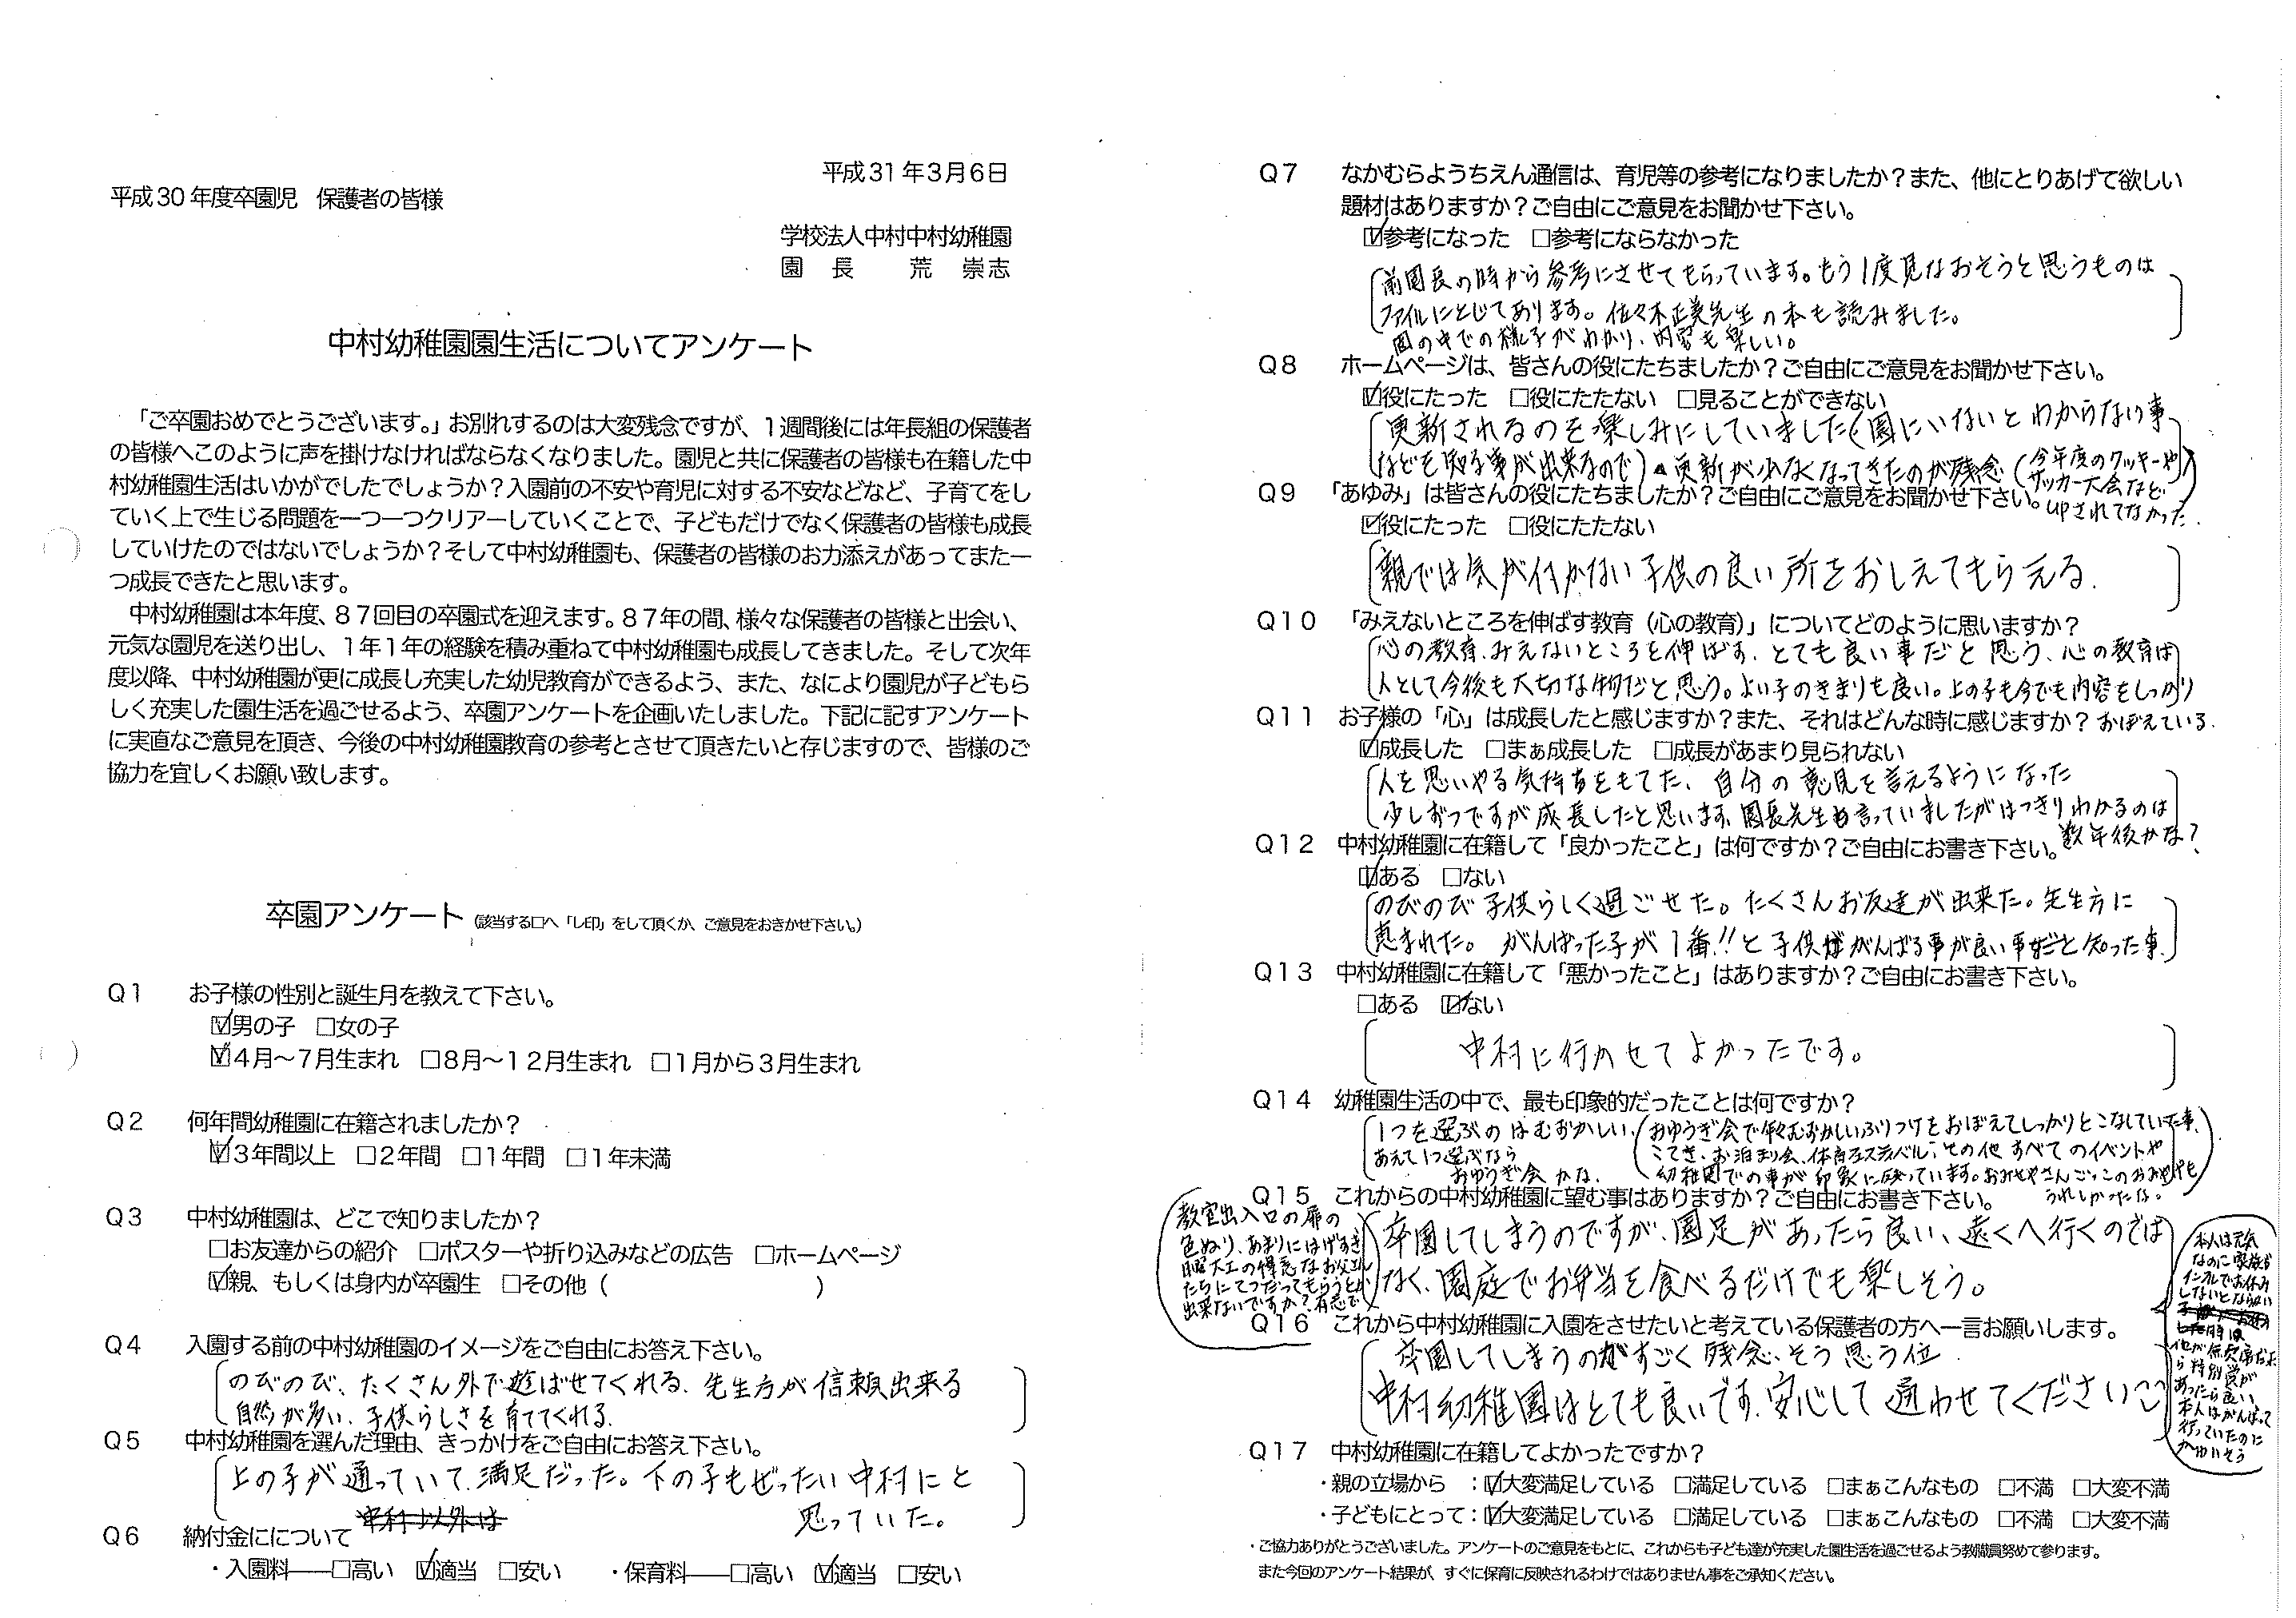 平成31年3月6日
平成30年度卒園児　保護者の皆様
学校法人中村中村幼稚園
園　長　　荒　崇志
中村幼稚園園生活についてアンケート
「ご卒園おめでとうございます。」お別れするのは大変残念ですが、1週間後には年長組の保護者
の皆様へこのように声を掛けなければならなくなりました。園児と共に保護者の皆様も在籍した中
村幼稚園生活はいかがでしたでしょうか？入園前の不安や育児に対する不安などなど、子育てをし
ていく上で生じる問題を一つ一つクリアーしていくことで、子どもだけでなく保護者の皆様も成長
していけたのではないでしょうか？そして中村幼稚園も、保護者の皆様のお力添えがあってまた一
つ成長できたと思います。
中村幼稚園は本年度、87回目の卒園式を迎えます。87年の間、様々な保護者の皆様と出会い、
元気な園児を送り出し、1年1年の経験を積み重ねて中村幼稚園も成長してきました。そして次年
度以降、中村幼稚園が更に成長し充実した幼児教育ができるよう、また、なにより園児が子どもら
しく充実した園生活を過ごせるよう、卒園アンケートを企画いたしました。下記に記すアンケート
に実直なご意見を頂き、今後の中村幼稚園教育の参考とさせて頂きたいと存じますので、皆様のご
協力を宜しくお願い致します。
卒園アンケート（該当する□へ「レ印」をして頂くか、ご意見をおきかせ下さい。）
Q1　お子様の性別と誕生月を教えて下さい。
☑男の子　□女の子
☑4月～7月生まれ　□8月～12月生まれ　□1月から3月生まれ
Q2　何年間幼稚園に在籍されましたか？
☑3年間以上　□2年間　□1年間　□1年未満
Q3　中村幼稚園は、どこで知りましたか？
□お友達からの紹介　□ポスターや折り込みなどの広告　□ホームページ
☑親、もしくは身内が卒園生　□その他（　　　　　　　　　）
Q4　入園する前の中村幼稚園のイメージをご自由にお答え下さい。
のびのび、たくさん外で遊ばせてくれる、先生方が信頼出来る
自然が多い、子供らしさを育ててくれる。
Q5　中村幼稚園を選んだ理由、きっかけをご自由にお答え下さい。
上の子が通っていて、満足だった。下の子もぜったい中村にと
中村以外は　思っていた。
Q6　納付金にについて
・入園料――□高い　☑適当　□安い　・保育料――□高い　☑適当　□安い
Q7　なかむらようちえん通信は、育児等の参考になりましたか？また、他にとりあげて欲しい
題材はありますか？ご自由にご意見をお聞かせ下さい。
☑参考になった　□参考にならなかった
前園長の時から参考にさせてもらっています。もう1度見なおそうと思うものは
ファイルにとじてあります。佐々木正美先生の本も読みました。
園の中での様子がわかり、内容も楽しい。
Q8　ホームページは、皆さんの役にたちましたか？ご自由にご意見をお聞かせ下さい。
☑役にたった　□役にたたない　□見ることができない
更新されるのを楽しみにしていました（園にいないとわからない事
なども知る事が出来るので）▲更新が少なくなってきたのが残念（今年度のクッキーや
サッカー大会など
UPされてなかった
Q9　「あゆみ」は皆さんの役にたちましたか？ご自由にご意見をお聞かせ下さい。
☑役にたった　□役にたたない
親では気が付かない子供の良い所をおしえてもらえる。
Q10　「みえないところを伸ばす教育（心の教育）」についてどのように思いますか？
心の教育、みえないところを伸ばす、とても良い事だと思う、心の教育は
人として今後も大切な物だと思う。よい子のきまりも良い。上の子も今でも内容をしっかり
おぼえている。
Q11　お子様の「心」は成長したと感じますか？また、それはどんな時に感じますか？
☑成長した　□まぁ成長した　□成長があまり見られない
人を思いやる気持ちをもてた、自分の意見を言えるようになった
少しずつですが成長したと思います。園長先生も言っていましたがはっきりわかるのは
数年後かな？
Q12　中村幼稚園に在籍して「良かったこと」は何ですか？ご自由にお書き下さい。
☑ある　□ない
のびのび子供らしく過ごせた。たくさんお友達が出来た。先生方に
恵まれた。がんばった子が1番!!と子供がんばる事が良い事だと知った事。
Q13　中村幼稚園に在籍して「悪かったこと」はありますか？ご自由にお書き下さい。
□ある　☑ない
中村に行かせてよかったです。
Q14　幼稚園生活の中で、最も印象的だったことは何ですか？
1つを選ぶのはむずかしい
あえて1つ選ぶなら
おゆうぎ会かな。
おゆうぎ会で年々むずかしいふりつけをおぼえてしっかりとこなしていた事、
こてき、お泊まり会、体育フェスティバル、その他すべてのイベントや
幼稚園での事が印象に残っています。おみせやさんごっこのおみやげも
うれしかったな。
Q15　これからの中村幼稚園に望む事はありますか？ご自由にお書き下さい。
卒園してしまうのですが、園足があったら良い、遠くへ行くのでは
なく、園庭でお弁当を食べるだけでも楽しそう。
教室出入口の扉の
色ぬり、あまりにはげすぎ
日曜大工の得意なお父さん
たちにてつだってもらうとか
出来ないですか？有志で
本人は元気
なのに家族が
インフルでお休み
しないとならない
時は
他が無欠席だった
ら特別賞が
あったら良い、
本人はがんばって
行っていたのに
かわいそう
Q16　これから中村幼稚園に入園をさせたいと考えている保護者の方へ一言お願いします。
卒園してしまうのがすごく残念、そう思う位
中村幼稚園はとても良いです、安心して通わせてください
Q17　中村幼稚園に在籍してよかったですか？
・親の立場から　：☑大変満足している　□満足している　□まぁこんなもの　□不満　□大変不満
・子どもにとって：☑大変満足している　□満足している　□まぁこんなもの　□不満　□大変不満
・ご協力ありがとうございました。アンケートのご意見をもとに、これからも子ども達が充実した園生活を過ごせるよう教職員努めて参ります。
また今回のアンケート結果が、すぐに保育に反映されるわけではありません事をご承知ください。